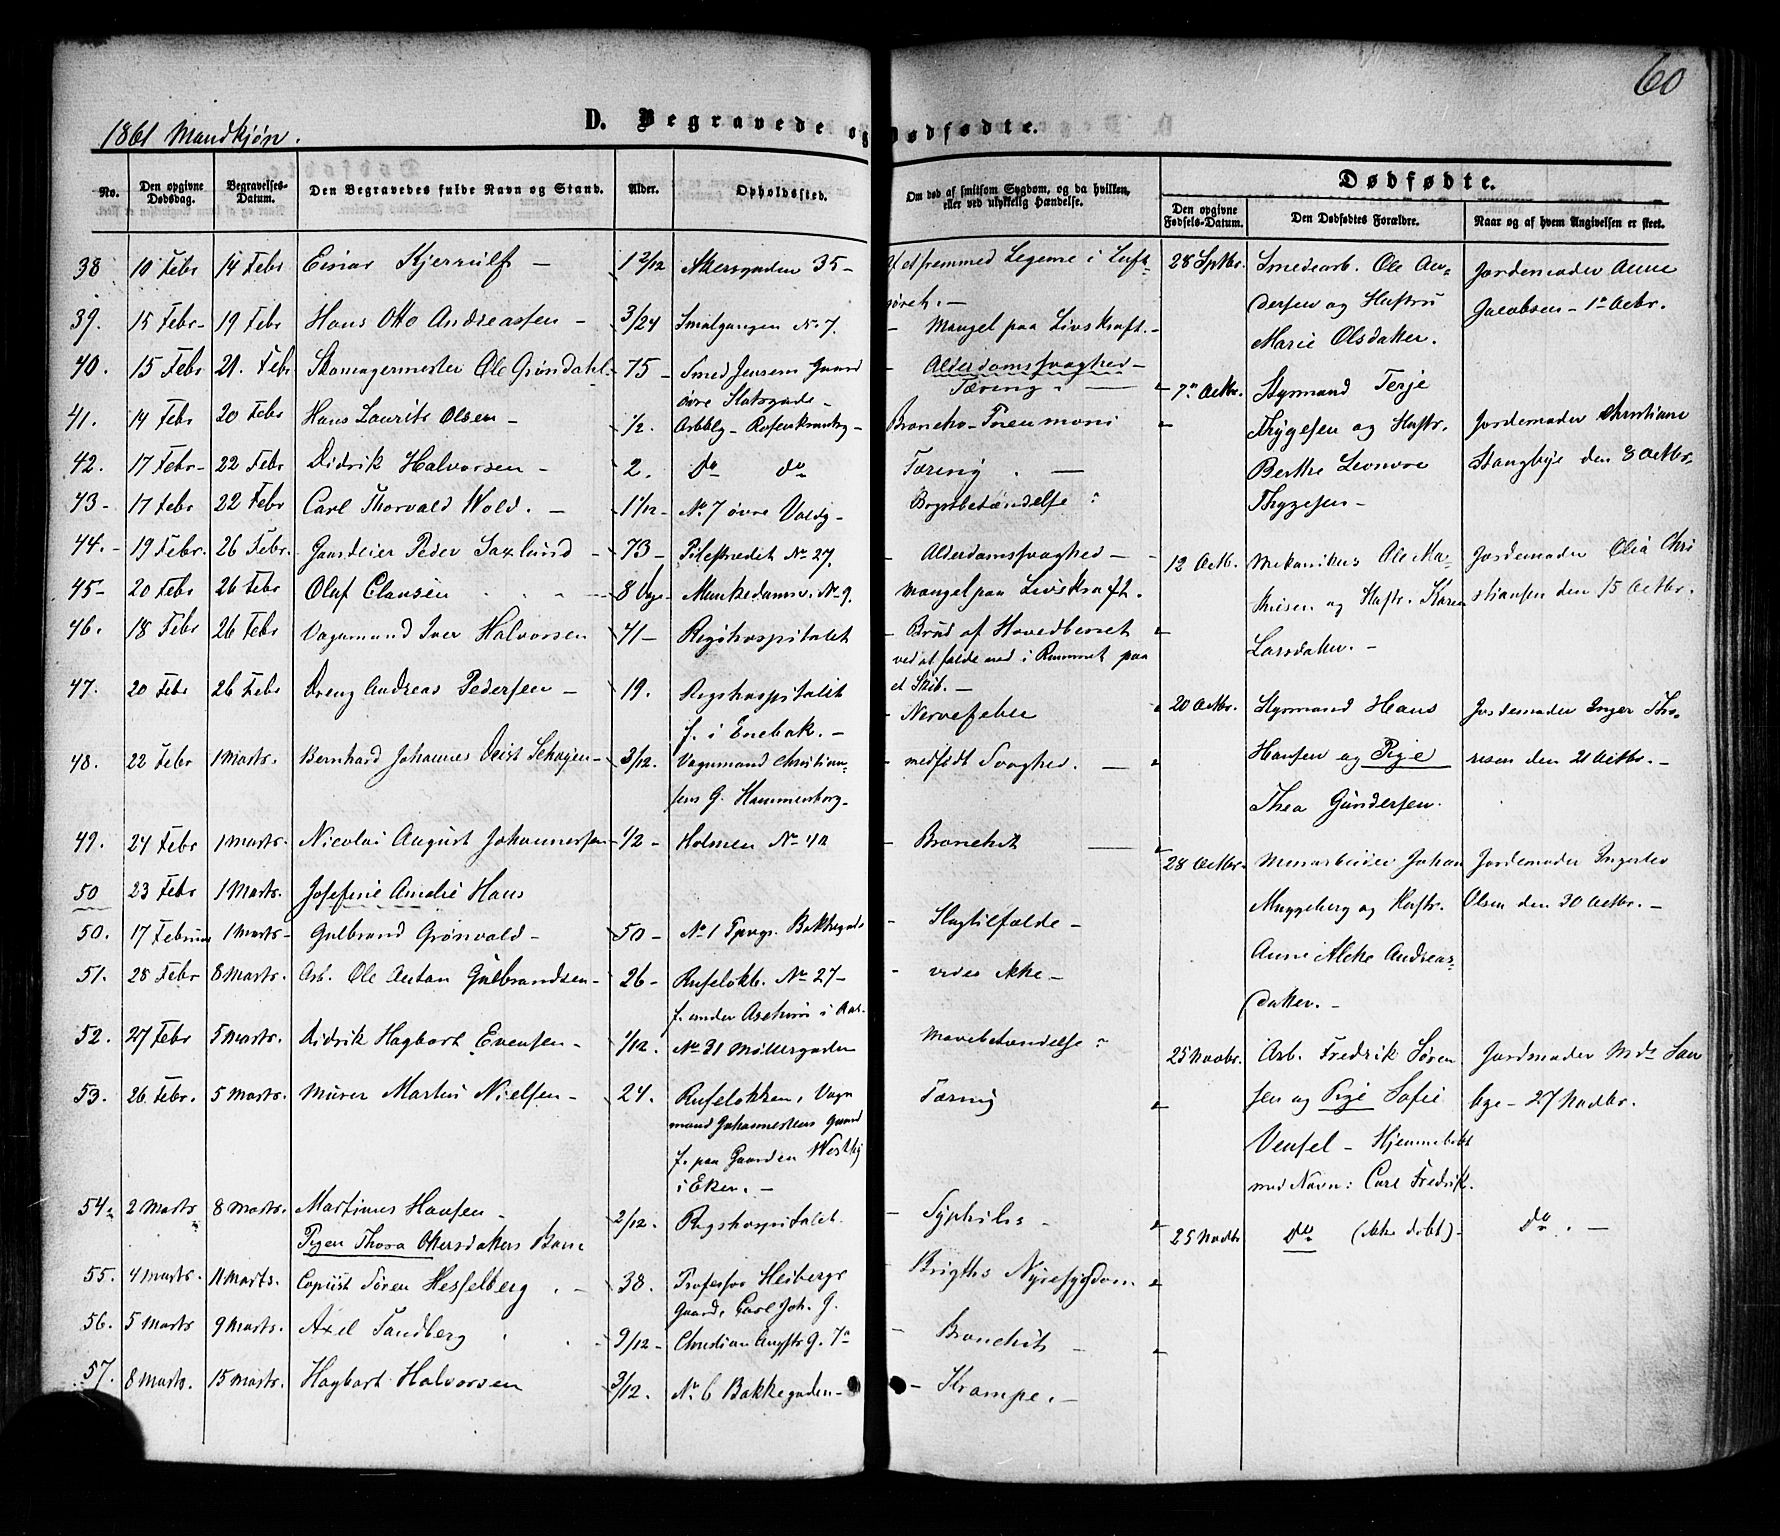 60
1861 Mandkjøn.
D. Begravede og Dødfødte.
No.
Den opgivne Dødsdag.
Begravelses-Datum.
Den Begravedes fulde Navn og Stand.
Alder.
Opholdssted.
Om død af smitsom Sygdom, og da hvilken, eller ved ulykkelig Hændelse.
Dødfødte.
Den opgivne Fødsels-Datum.
Den Dødfødtes Forældre.
Naar og af hvem Angivelsen er skeet.
38 10 Febr 14 Febr Einar Kjerrulf – 1 2/12 Akersgaden 35 – Af et fremmed Legeme i Luft-
røret. –
39. 15 Febr– 19 Febr Hans Otto Andreassen – 3/24 Smalgangen No 7. – Mangel paa Livskraft. –
40. 15 Febr 21. Febr Skomagermester Ole Grøndahl 75 – Smed Jensens Gaard – Alderdomssvaghed –
øvre Slotsgade – Tæring
41. 14 Febr 20 Febr Hans Laurits Olsen – 1/2. Arbblg – Rosenkrantzg – Broncho-Pneumoni
42. 17 Febr– 22 Febr Didrik Halvorsen – 2. do do Tæring. –
43 – 17 Febr 22 Febr Carl Thorvald Wold. – 1 1/12 – No 7 øvre Voldg – Brystbetændelse
44. – 19 Febr. 26 Febr. Gaardeier Peder Saxlund – 73 – Pilestrædet No 27. – Alderdomssvaghed –
45 – 20 Febr 26 Febr Oluf Clausen 8 Uger Munkedamsv. No 9. Mangel paa Livskraft.
46. 18 Febr 26 Febr Vognmand Iver Halvorsen 41 – Rigshospitalet – Brud af Hovedbenet
ved at falde ned i Rummet paa
et Skib. –
47. 20 Febr 26 Febr Dreng Andreas Pedersen – 19. Rigshospitalet – Nervefeber
f. i Enebak. –
48. 22 Febr 1 Marts. Bernhard Johannes – 3/12. Vognmand Christian- – medfødt Svaghed. –
sens G. Hammersborg –
49. 24 Febr 1 Marts. Nicolai August Johannessen – 1/2 – Holmen No – Bronchit
50 23 Febr 1 Marts. Josefine Amalie Hans
50. 17 Februar 1 Marts – Gulbrand Grønvold – 50 – No 1 Bakkegade – Slagtilfælde –
51. 28 Febr 8 Marts. Arb. Ole Anton Gulbrandsen – 26 – Rufeløkb. No 27 – – vides ikke –
52. 27 Febr 5 Marts. Didrik Hagbart Evensen – 1/12. No 21 Møllergaden Mavebetændelse
53. 26 Febr. 5 Marts. Murer Martin Nielsen – 24. Rufeløkken, Vogn Tæring
mand Johannesens Gaard
f. paa Gaarden Westby
i Eker. –
54. 2 Marts 8 Marts. Martinus Hansen – 2/12. Rigshospitalet. – Syphilis –
Pigen Thora Olersdatters Barn
55. 4 Marts. 11 Marts. Copiist Søren Hesselberg. – 38. Professor Heibergs – Brigths Nyresygdom
Gaard, Carl Joh. G.
56. 5 Marts 9 Marts. Axel Sandberg 9/12 – Christian Augusts G. 7a – Bronchit
57. 8 Marts. 15 Marts. Hagbart Halvorsen 3/12. No 6 Bakkegaden – – Krampe. –
28 Septbr. Smedearb. Ole An- Jordemoder Anne
dersen og Hustru Jacobsen – 1 Octbr.
Marie Olsdatter.
7 Octbr. Styrmand Terje
Thygesen og Hustr. Jordemoder Christiane
Berthe Leonore Stangbye den 8 Octbr
Thygesen –
12 Octb. Mekanikus Ole Ma- Jordemoder Olia Chri
thisen og Hustr. Karen stiansen den 15 Octbr.
Larsdatter. –
20 Octbr. Styrmand Hans Jordemoder Inger Tho-
Hansen og Pige resen den 21 Octbr. –
Thea Gundersen.
28 Octbr. Minearbeider Johan Jordemoder Ingeborg
Muggeberg og Hustr. Olsen den 30 Octbr. –
Anne Andreas-
datter. –
25 Novbr. Arb. Fredrik Søren Jordmoder Md
sen og Pige Sofie bye – 27 Novbr.
Vensel – Hjemmedøbt
med Navn: Carl Fredrik.
25 Novbr do (ikke døbt) – do. –